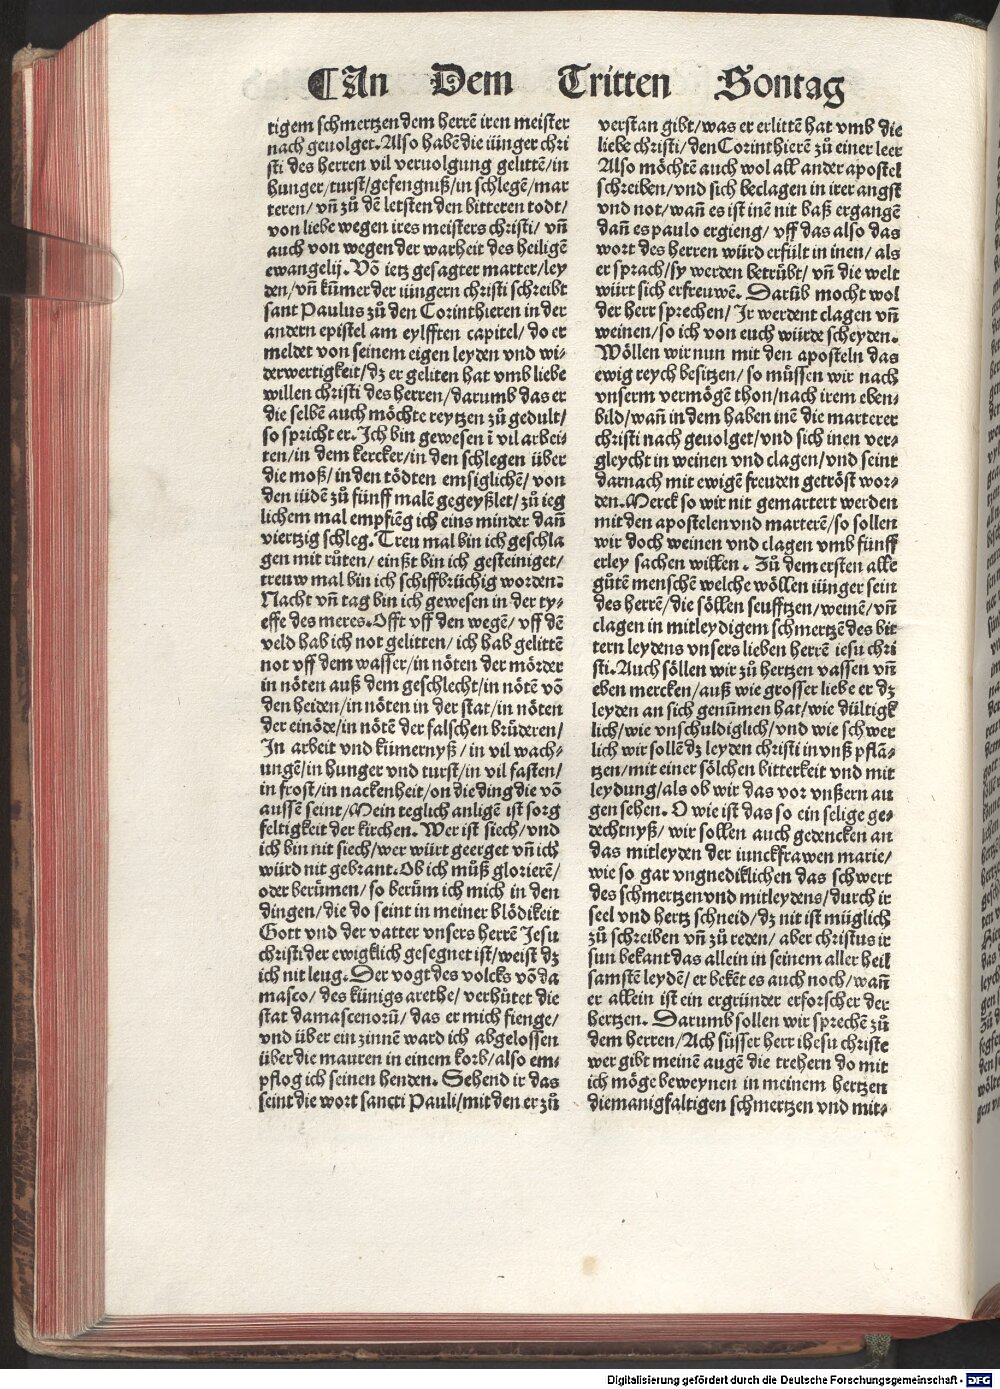 ¶ An Dem Tritten Sontag
tigem schmertzen dem herrē iren meister
nach geuolget. Also habē die iünger chri
sti des herren vil veruolgung gelittē/ in
hunger/ turst/ gefengniß/ in schlegē/ mar
teren/ vñ zů dē letsten den bitteren todt/
von liebe wegen ires meisters christi/ vñ
auch von wegen der warheit des heiligē
ewangelij. Võ ietz gesagter marter/ ley
den/ vñ kūmer der iüngern christi schreibt
sant Paulus zů den Corinthieren in der
andern epistel am eylfften capitel/ do er
meldet von seinem eigen leyden vnd wi⸗
derwertigkeit/ dz er geliten hat vmb liebe
willen christi des herren/ darumb das er
die selbē auch möchte reytzen zů gedult/
so spricht er. Ich bin gewesen ī vil arbei⸗
ten/ in dem kercker/ in den schlegen über
die moß/ in den tödten emsiglichē/ von
den iüdē zů fünff malē gegeyßlet/ zů ieg
lichem mal empfiēg ich eins minder dañ
viertzig schleg. Treu mal bin ich geschla
gen mit růten/ einßt bin ich gesteiniget/
treuw mal bin ich schiffbrüchig worden:
Nacht vñ tag bin ich gewesen in der ty⸗
effe des meres. Offt vff den wegē/ vff dē
veld hab ich not gelitten/ ich hab gelittē
not vff dem wasser/ in nöten der mörder
in nöten auß dem geschlecht/ in nötē võ
den heiden/ in nöten in der stat/ in nöten
der einöde/ in nötē der falschen brüderen/
In arbeit vnd kümernyß/ in vil wach⸗
ungē/ in hunger vnd turst/ in vil fasten/
in frost/ in nackenheit/ on die ding die võ
aussē seint/ Mein teglich anligē ist sorg
feltigkeit der kirchen. Wer ist siech/ vnd
ich bin nit siech/ wer würt geerget vñ ich
würd nit gebrant. Ob ich můß glorierē/
oder berümen/ so berüm ich mich in den
dingen/ die do seint in meiner blödikeit
Gott vnd der vatter vnsers herrē Jesu
christi der ewigklich gesegnet ist/ weist dz
ich nit leug. Der vogt des volcks võ da
masco/ des künigs arethe/ verhůtet die
stat damascenorū/ das er mich fienge/
vnd über ein zinnē ward ich abgelossen
über die mauren in einem korb/ also em⸗
pflog ich seinen henden. Sehend ir das
seint die wort sancti Pauli/ mit den er zů
verstan gibt/ was er erlittē hat vmb die
liebe christi/ den Corinthierē zů einer leer
Also möchtē auch wol all ander apostel
schreiben/ vnd sich beclagen in irer angst
vnd not/ wañ es ist inē nit baß ergangē
dañ es paulo ergieng/ vff das also das
wort des herren würd erfült in inen/ als
er sprach/ sy werden betrůbt/ vñ die welt
würt sich erfreuwē. Darüb mocht wol
der herr sprechen/ Jr werdent clagen vñ
weinen/ so ich von euch würde scheyden.
Wöllen wir nun mit den aposteln das
ewig reych besitzen/ so müssen wir nach
vnserm vermögē thon/ nach irem eben⸗
bild/ wañ in dem haben inē die marterer
christi nach geuolget/ vnd sich inen ver⸗
gleycht in weinen vnd clagen/ vnd seint
darnach mit ewigē freuden getröst wor⸗
den. Merck so wir nit gemartert werden
mit den apostelen vnd marterē/ so sollen
wir doch weinen vnd clagen vmb fünff
erley sachen willen. Zů dem ersten alle
gůtē menschē welche wöllen iünger sein
des herrē/ die söllen seufftzen/ weinē/ vñ
clagen in mitleydigem schmertzē des bit
tern leydens vnsers lieben herrē iesu chri
sti. Auch söllen wir zů hertzen vassen vñ
eben mercken/ auß wie grosser liebe er dz
leyden an sich genūmen hat/ wie dültigk
lich/ wie vnschuldiglich/ vnd wie schwer
lich wir sollē dz leyden christi in vnß pflā⸗
tzen/ mit einer sölchen bitterkeit vnd mit
leydung/ als ob wir das vor vnßern au
gen sehen. O wie ist das so ein selige ge⸗
dechtnyß/ wir sollen auch gedencken an
das mitleyden der iunckfrawen marie/
wie so gar vngnediklichen das schwert
des schmertzen vnd mitleydens/ durch ir
seel vnd hertz schneid/ dz nit ist müglich
zů schreiben vñ zů reden/ aber christus ir
sun bekant das allein in seinem aller heil
samstē leydē/ er bekēt es auch noch/ wañ
er allein ist ein ergründer erforscher der
hertzen. Darumb sollen wir sprechē zů
dem herren/ Ach süsser herr ihesu christe
wer gibt meinē augē die trehern do mit
ich möge beweynen in meinem hertzen
die manigfaltigen schmertzen vnd mit⸗
Digitalisierung gefördert durch die Deutsche Forschungsgemeinschaft - DFG